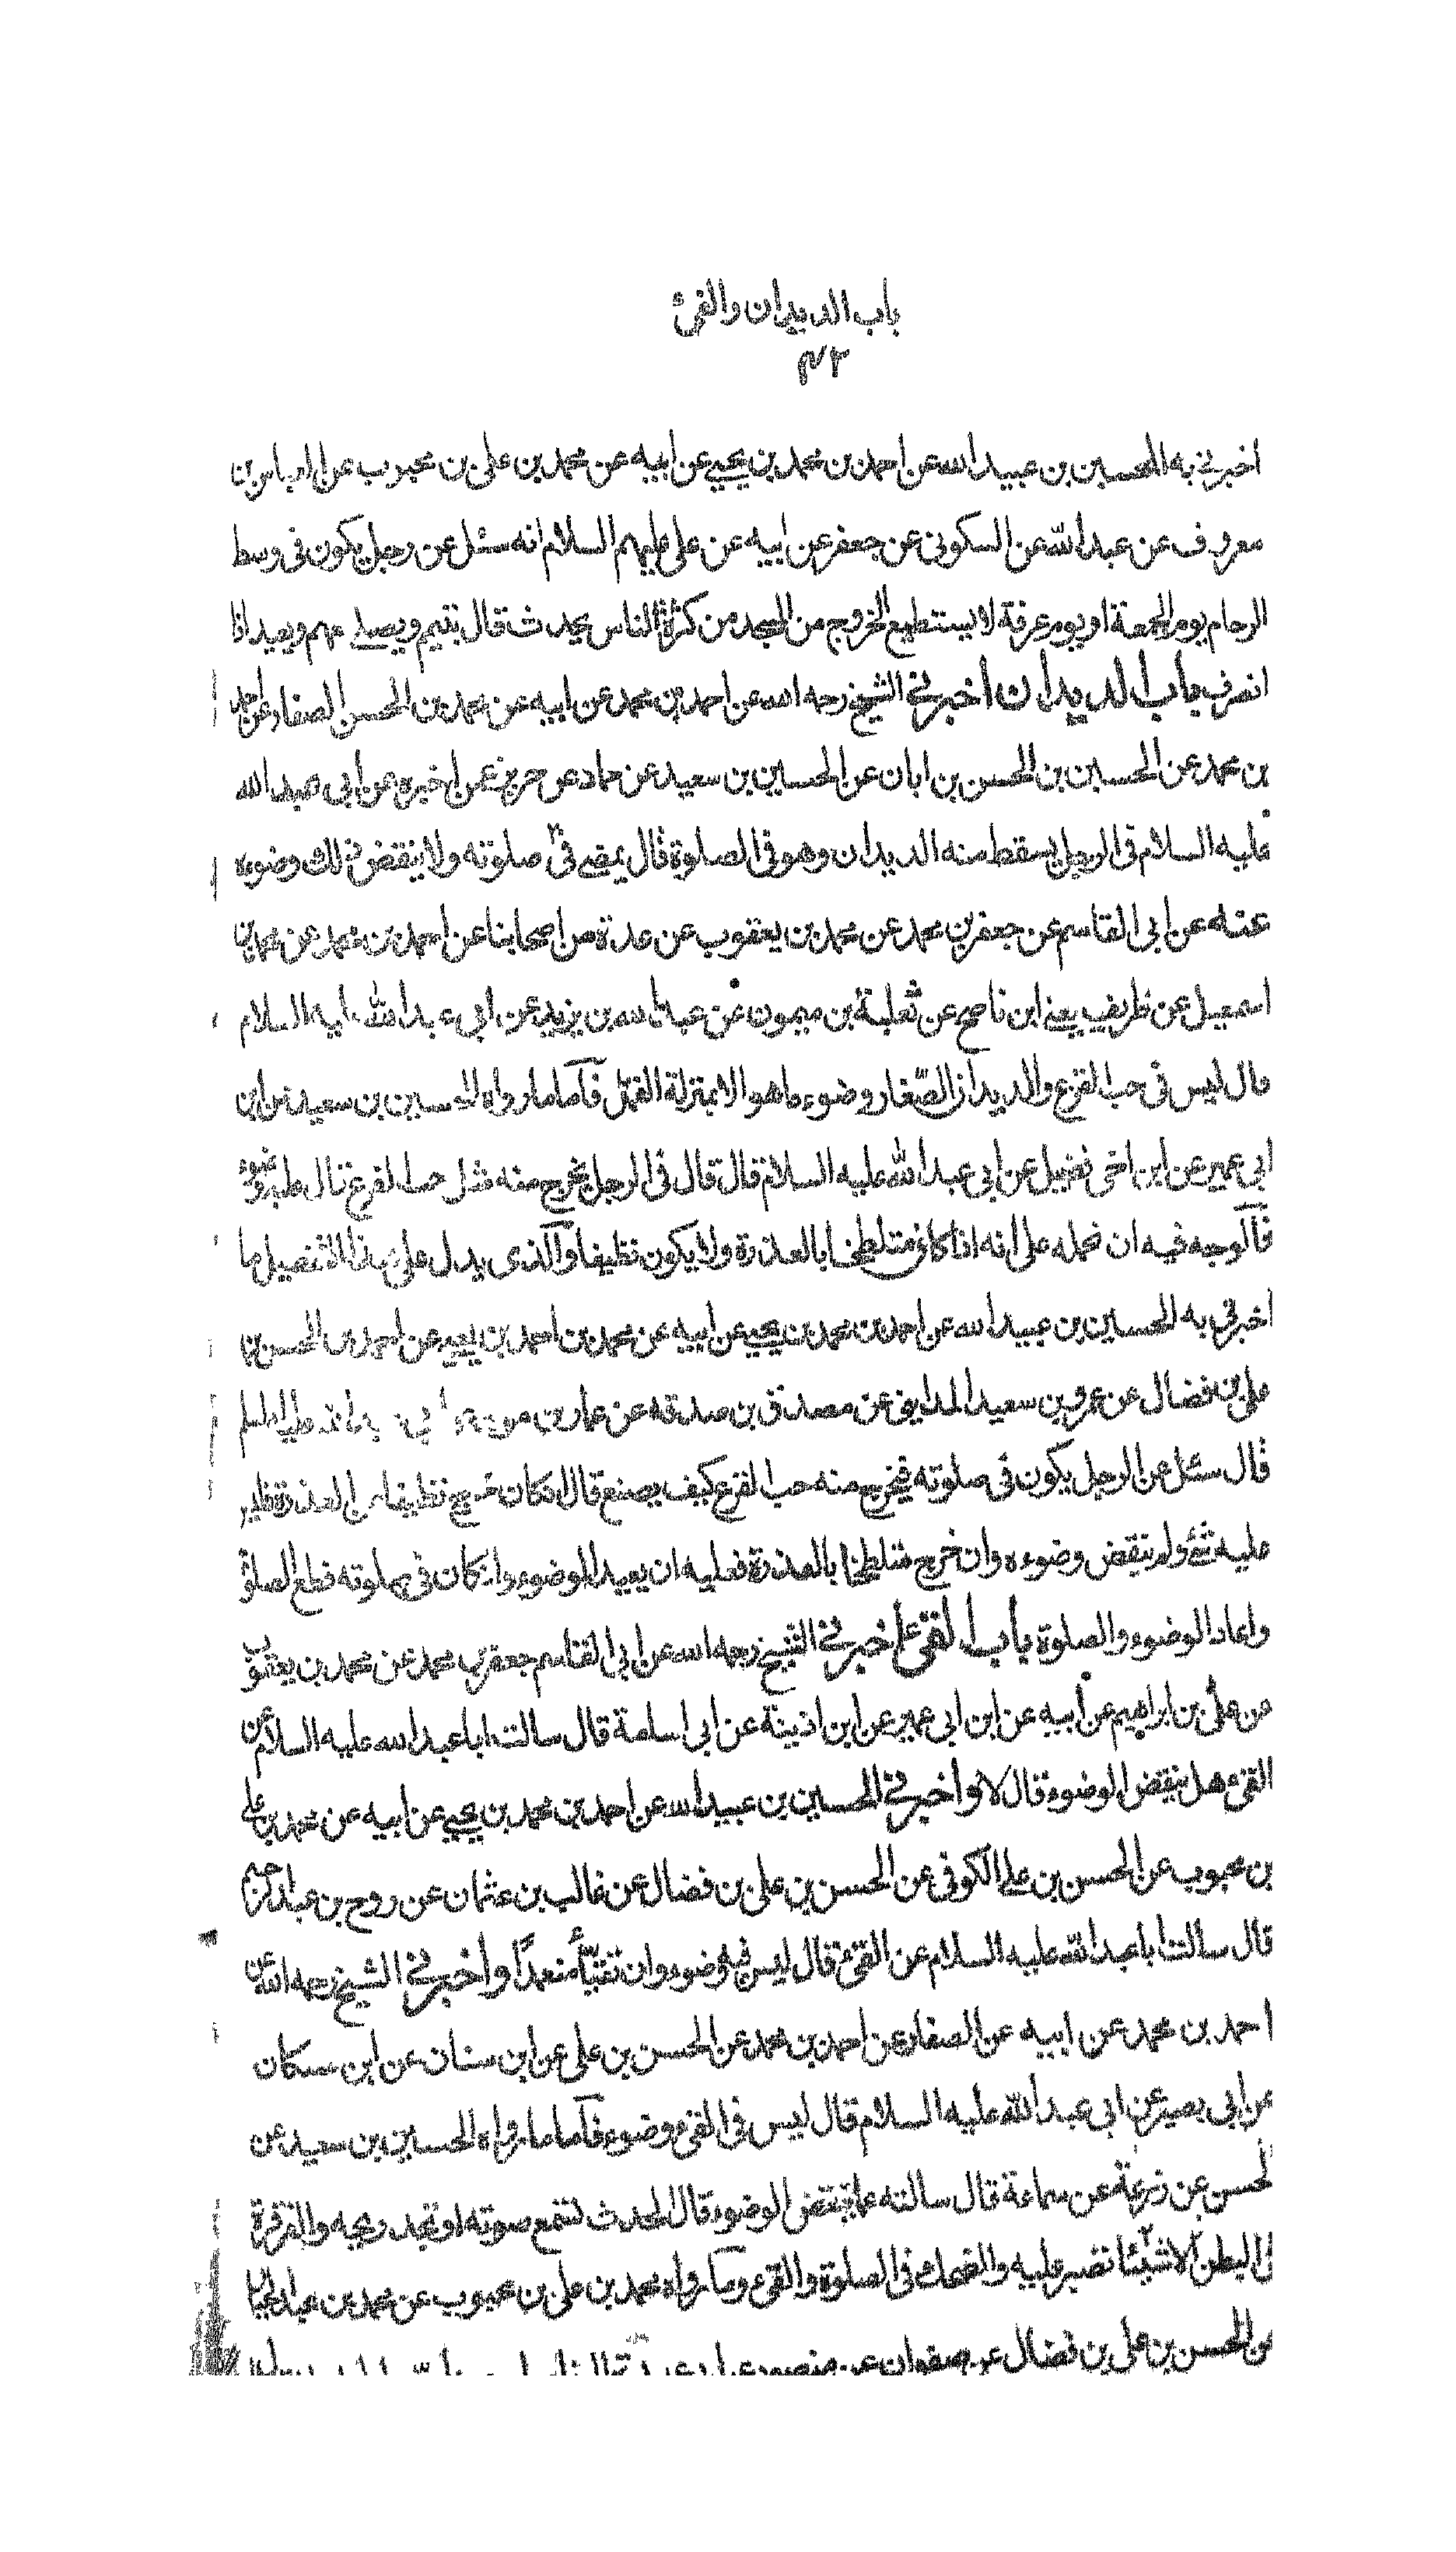 باب الديدان والقئ
٤٢
اخبرني به الحسين بن عبيد الله عن احمد بن محمد بن يحيى عن ابيه عن محمد بن علي بن محبوب عن العباس بن
معروف عن عبد الله عن السكوني عن جعفر عن ابيه عن علي عليهم السلام انه سئل عن رجل يكون في وسط
الزحام يوم الجمعة او يوم عرفة لا يستطيع الخروج من المسجد من كثرة الناس يحدث قال يتيمم ويصلي معهم ويعيد اذا
انصرف باب الديدان اخبرني الشيخ رحمه الله عن احمد بن محمد عن ابيه عن محمد بن الحسن الصفار عن احمد
بن محمد عن الحسين بن الحسن بن ابان عن الحسين بن سعيد عن حماد عن حريز عمن اخبره عن ابي عبد الله
عليه السلام في الرجل يسقط منه الديدان وهو في الصلوة قال يمضي في صلوته ولا ينقض ذلك وضوءه
عنه عن ابي القاسم عن جعفر بن محمد عن محمد بن يعقوب عن عدة من اصحابنا عن احمد بن محمد عن محمد بن
اسمعيل عن ظريف يعني ابن ناصح عن ثعلبة بن ميمون عن عبد الله بن يزيد عن ابي عبد الله عليه السلام
قال ليس في حب القرع والديدان الصّغار وضوء ما هو الا بمنزلة القمّل فأما ما رواه الحسين بن سعيد عن ابن
ابي عمير عن ابن اخي فضيل عن ابي عبد الله عليه السلام قال قال في الرجل يخرج منه مثل حب القرع قال عليه وضوء
فالوجه فيه ان نحمله على انه اذا كان متلطخا بالعذرة ولا يكون نظيفا والذي يدل على هذا التفصيل ما
اخبرني به الحسين بن عبيد الله عن احمد بن محمد بن يحيى عن ابيه عن محمد بن احمد بن يحيى عن احمد بن الحسن بن
علي بن فضال عن عمرو بن سعيد المدايني عن مصدق بن صدقه عن عمار بن موسى عن ابي عبد الله عليه السلم
قال سئل عن الرجل يكون في صلوته فيخرج منه حب القرع كيف يصنع قال ان كان خرج نظيفا من العذرة فليس
عليه شئ ولم ينقض وضوءه وان خرج متلطخا بالعذرة فعليه ان يعيد الوضوء وان كان في صلوته قطع الصلوة
واعاد الوضوء والصلوة باب القئ اخبرني الشيخ رحمه الله عن ابي القاسم جعفر بن محمد عن محمد بن يعقوب
عن علي بن ابراهيم عن ابيه عن ابن ابي عمير عن ابن اذينة عن ابي اسامة قال سالت ابا عبد الله عليه السلام عن
القئ هل ينقض الوضوء قال لا واخبرني الحسين بن عبيد الله عن احمد بن محمد بن يحيى عن ابيه عن محمد بن علي
بن محبوب عن الحسن بن علي الكوفي عن الحسن بن علي بن فضال عن غالب بن عثمان عن روح بن عبد الرحيم
قال سالت ابا عبد الله عليه السلام عن القئ قال ليس فيه وضوء وان تقيّأ متعمدًا واخبرني الشيخ رحمه الله عن
احمد بن محمد عن ابيه عن الصفار عن احمد بن محمد عن الحسن بن علي عن ابن سنان عن ابن مسكان
عن ابي بصير عن ابي عبد الله عليه السلام قال ليس في القئ وضوء فأما ما رواه الحسين بن سعيد عن
الحسن عن زرعة عن سماعة قال سالته عما ينقض الوضوء قال الحدث تسمع صوته او تجد ريحه والقرقرة
في البطن الا شيئا تصبر عليه والضحك في الصلوة والقئ وما رواه محمد بن علي بن محبوب عن محمد بن عبد الجبار
عن الحسن بن علي بن فضال عن صفوان عن منصور